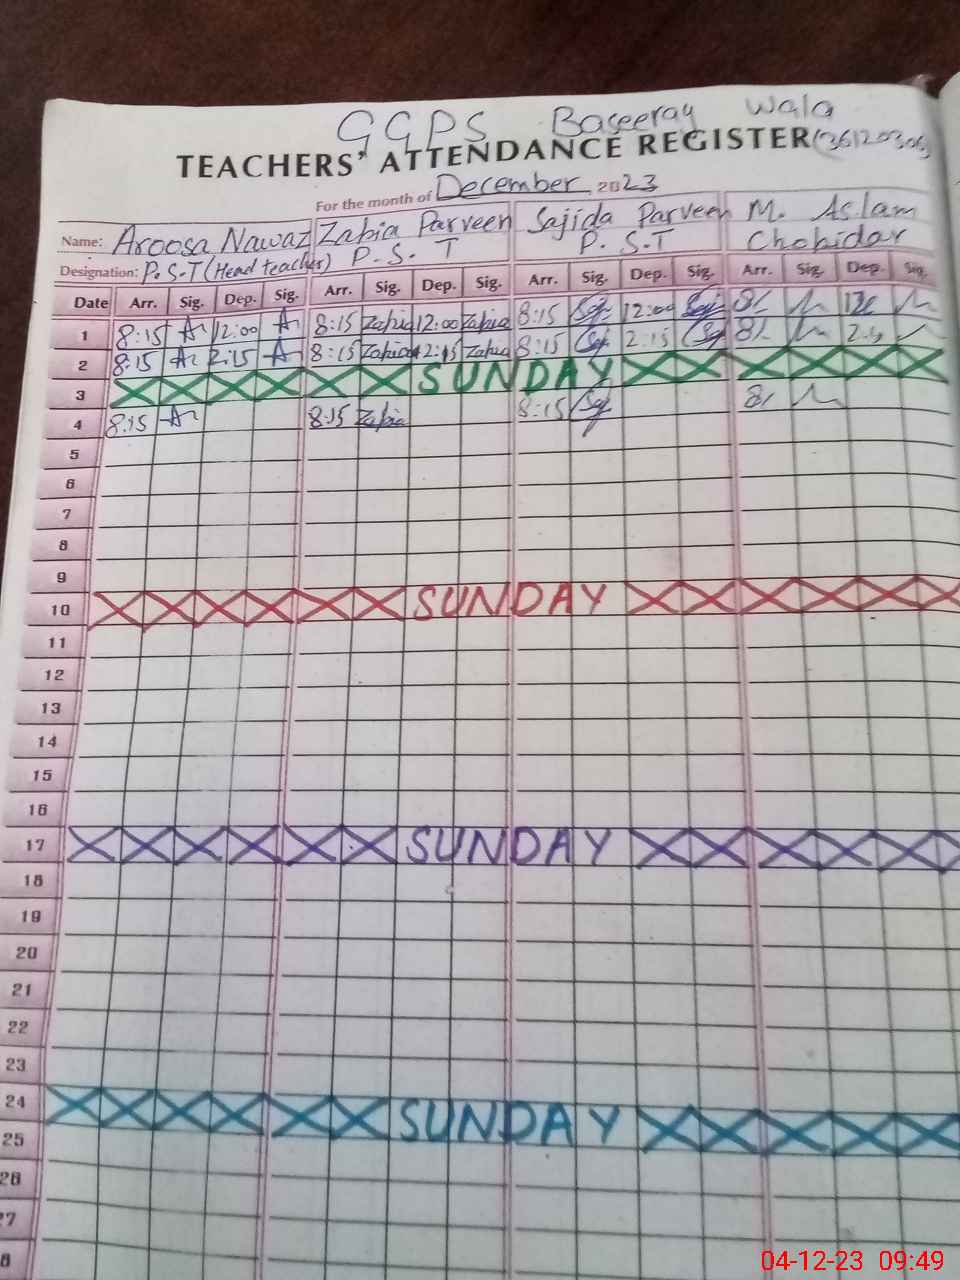 GGPS Baseeray Wala
TEACHERS' ATTENDANCE REGISTER (36120306)
For the month of December 2023
Name: Aroosa Nawaz Zabia Parveen Sajida Parveen M. Aslam
Designation: P.S.T (Head teacher) P.S.T P.S.T Chokidar
Date Arr. Sig. Dep. Sig. Arr. Sig. Dep. Sig. Arr. Sig. Dep. Sig. Arr. Sig. Dep. Sig.
1 8:15 12:00 8:15 Zabia 12:00 Zabia 8:15 12:00 8/
2 8:15 2:15 8:15 Zabia 2:15 Zabia 8:15 2:15 8/
3 SUNDAY
4 8:15 8:15 Zabia 8:15 8/
5
6
7
8
9
10 SUNDAY
11
12
13
14
15
16
17 SUNDAY
18
19
20
21
22
23
24 SUNDAY
25
26
27
8
04-12-23 09:49